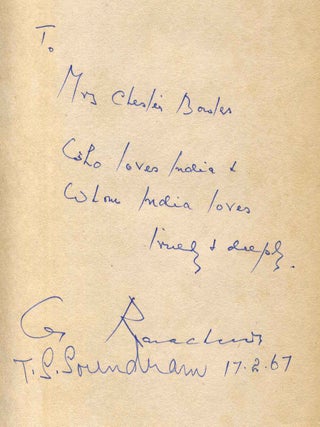 To
Mrs Chester Bowles
Who loves India &
Whom India loves
truely & deeply.
G. Ramachandran
T. S. Soundram 17.2.67